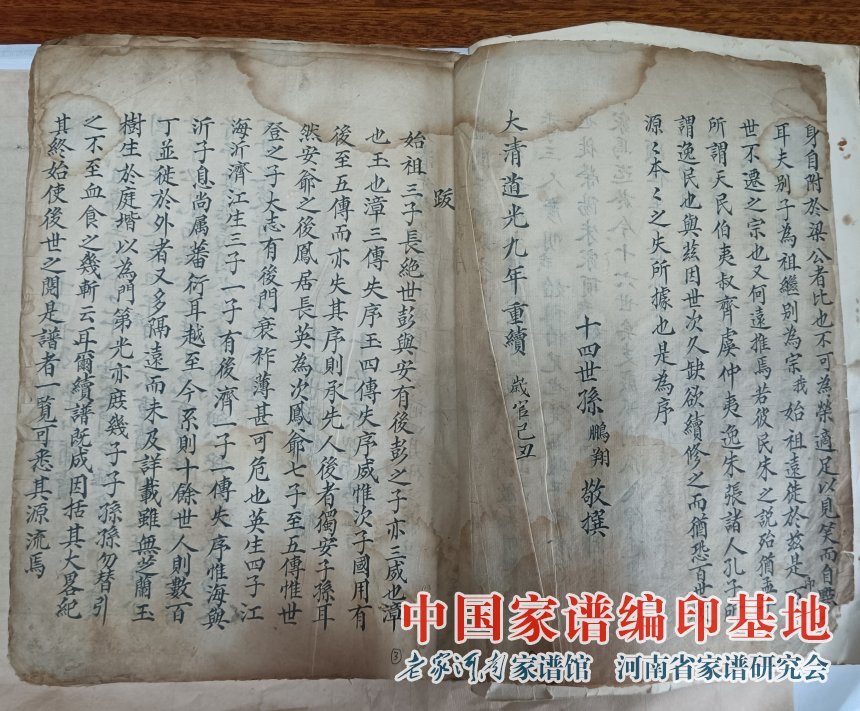 身自附於梁公者比也不可為榮適足以見笑而自
耳夫別子為祖繼別為宗我始祖遠徙於茲是
世不遷之宗也又何遠推焉若彼民朱之說殆猶
所謂天民伯夷叔齊虞仲夷逸朱張諸人孔子所
謂逸民也與茲因世次久缺欲續修之而猶恐百世
源〻本〻之失所據也是為序
十四世孫 鵬翔 敬撰
大清道光九年重續 歲官己丑
跋
始祖三子長絕世彭與安有後彭之子亦三威也漳
也王也漳三傳失序王四傳失序威惟次子國用有
後至五傳而亦失其序則承先人後者獨安子孫耳
然安爺之後鳳居長英為次鳳爺七子至五傳惟世
登之子大志有後門衰祚薄甚可危也英生四子江
海沂濟江生三子一子有後濟一子一傳失序惟海與
沂子息尚属蕃衍耳越至今系則十餘世人則數百
丁並徙於外者又多隅遠而未及詳載雖無芝蘭玉
樹生於庭楷以為門第光亦庶幾子子孫孫勿替引
之不至血食之幾斬云耳爾續譜既成因括其大畧紀
其終始使後世之閱是譜者一覽可悉其源流焉
③
中国家谱编印基地
老家河南家谱馆 河南省家谱研究会